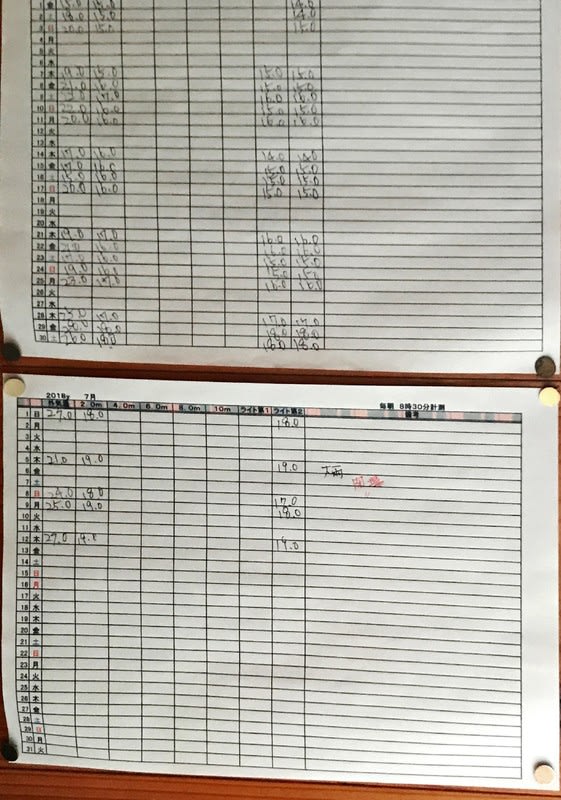 1 金 15.0 15.0 14.0
2 土 18.0 15.0 14.0
3 日 20.0 15.0 15.0
4 月
5 火
6 水
7 木 19.0 15.0 15.0 15.0
8 金 21.0 16.0 16.0 16.0
9 土 17.0 16.0 16.0
10 日 22.0 16.0 15.0 15.0
11 月 20.0 16.0 16.0 16.0
12 火
13 水
14 木 17.0 16.0 14.0 14.0
15 金 17.0 16.0 15.0 15.0
16 土 15.0 16.0 15.0 15.0
17 日 20.0 16.0 15.0 15.0
18 月
19 火
20 水
21 木 19.0 17.0 16.0 16.0
22 金 21.0 16.0 16.0 16.0
23 土 17.0 16.0 15.0 15.0
24 日 19.0 16.0 15.0 15.0
25 月 23.0 17.0 16.0 16.0
26 火
27 水
28 木 25.0 17.0 17.0 17.0
29 金 28.0 18.0 18.0 18.0
30 土 26.0 18.0 18.0 18.0
2018y 7月 毎朝 8時30分計測
外気温 2.0m 4.0m 6.0m 8.0m 10m ライト第1 ライト第2 備考
1 日 27.0 18.0
2 月 18.0
3 火
4 水
5 木 21.0 19.0
6 金 19.0 大雨
7 土
8 日 24.0 18.0
9 月 25.0 19.0 17.0
10 火 18.0
11 水
12 木 27.0
13 金 19.0
14 土
15 日
16 月
17 火
18 水
19 木
20 金
21 土
22 日
23 月
24 火
25 水
26 木
27 金
28 土
29 日
30 月
31 火